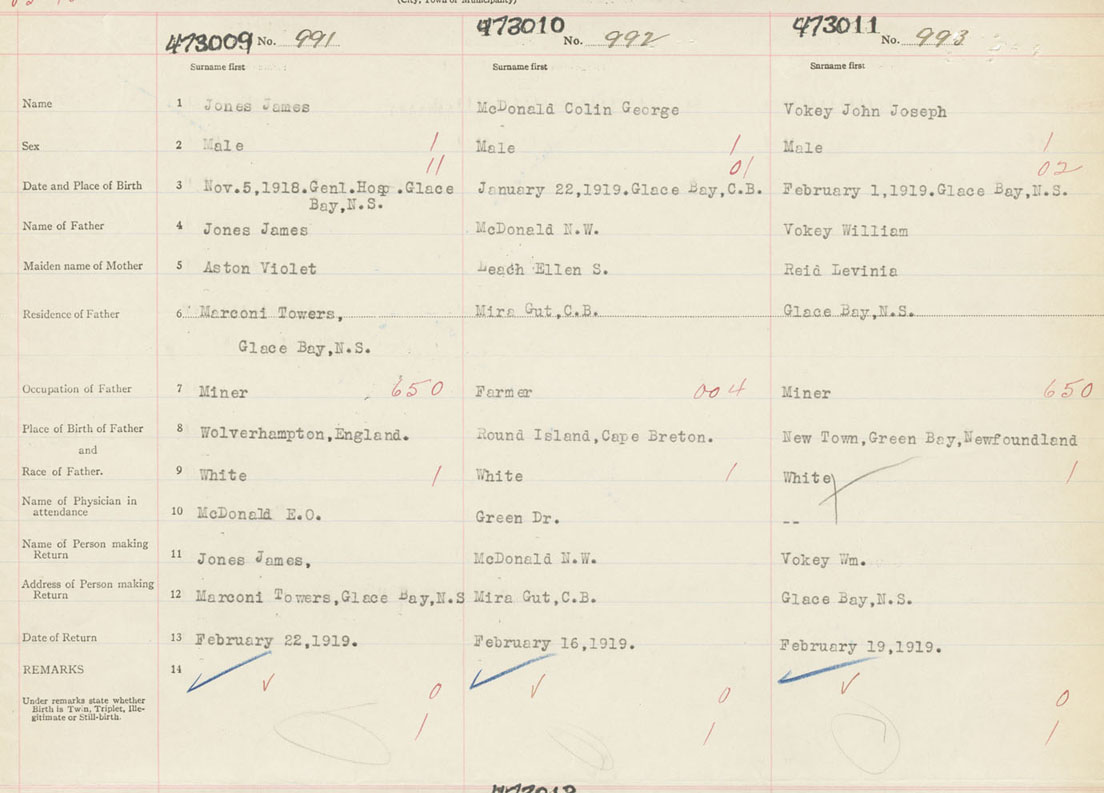 (City, Town or Municipality)
473009 No. 991
473010 No. 992
473011 No. 993
Surname first Surname first Surname first
Name 1 Jones James McDonald Colin George Vokey John Joseph
Sex 2 Male 1 Male 1 Male 1
11 01 02
Date and Place of Birth 3 Nov.5,1918.Genl.Hosp.Glace January 22,1919.Glace Bay,C.B. February 1,1919.Glace Bay,N.S.
Bay,N.S.
Name of Father 4 Jones James McDonald N.W. Vokey William
Maiden name of Mother 5 Aston Violet Leach Ellen S. Reid Levinia
Residence of Father 6 Marconi Towers, Mira Gut,C.B. Glace Bay,N.S.
Glace Bay,N.S.
Occupation of Father 7 Miner 650 Farmer 004 Miner 650
Place of Birth of Father 8 Wolverhampton,England. Round Island,Cape Breton. New Town,Green Bay,Newfoundland
and
Race of Father. 9 White 1 White 1 White 1
Name of Physician in
attendance 10 McDonald E.O. Green Dr. --
Name of Person making
Return 11 Jones James, McDonald N.W. Vokey Wm.
Address of Person making
Return 12 Marconi Towers,Glace Bay,N.S Mira Gut,C.B. Glace Bay,N.S.
Date of Return 13 February 22,1919. February 16,1919. February 19,1919.
REMARKS 14
Under remarks state whether
Birth is Twin, Triplet, Ille-
gitimate or Still-birth.
0 0 0
1 1 1